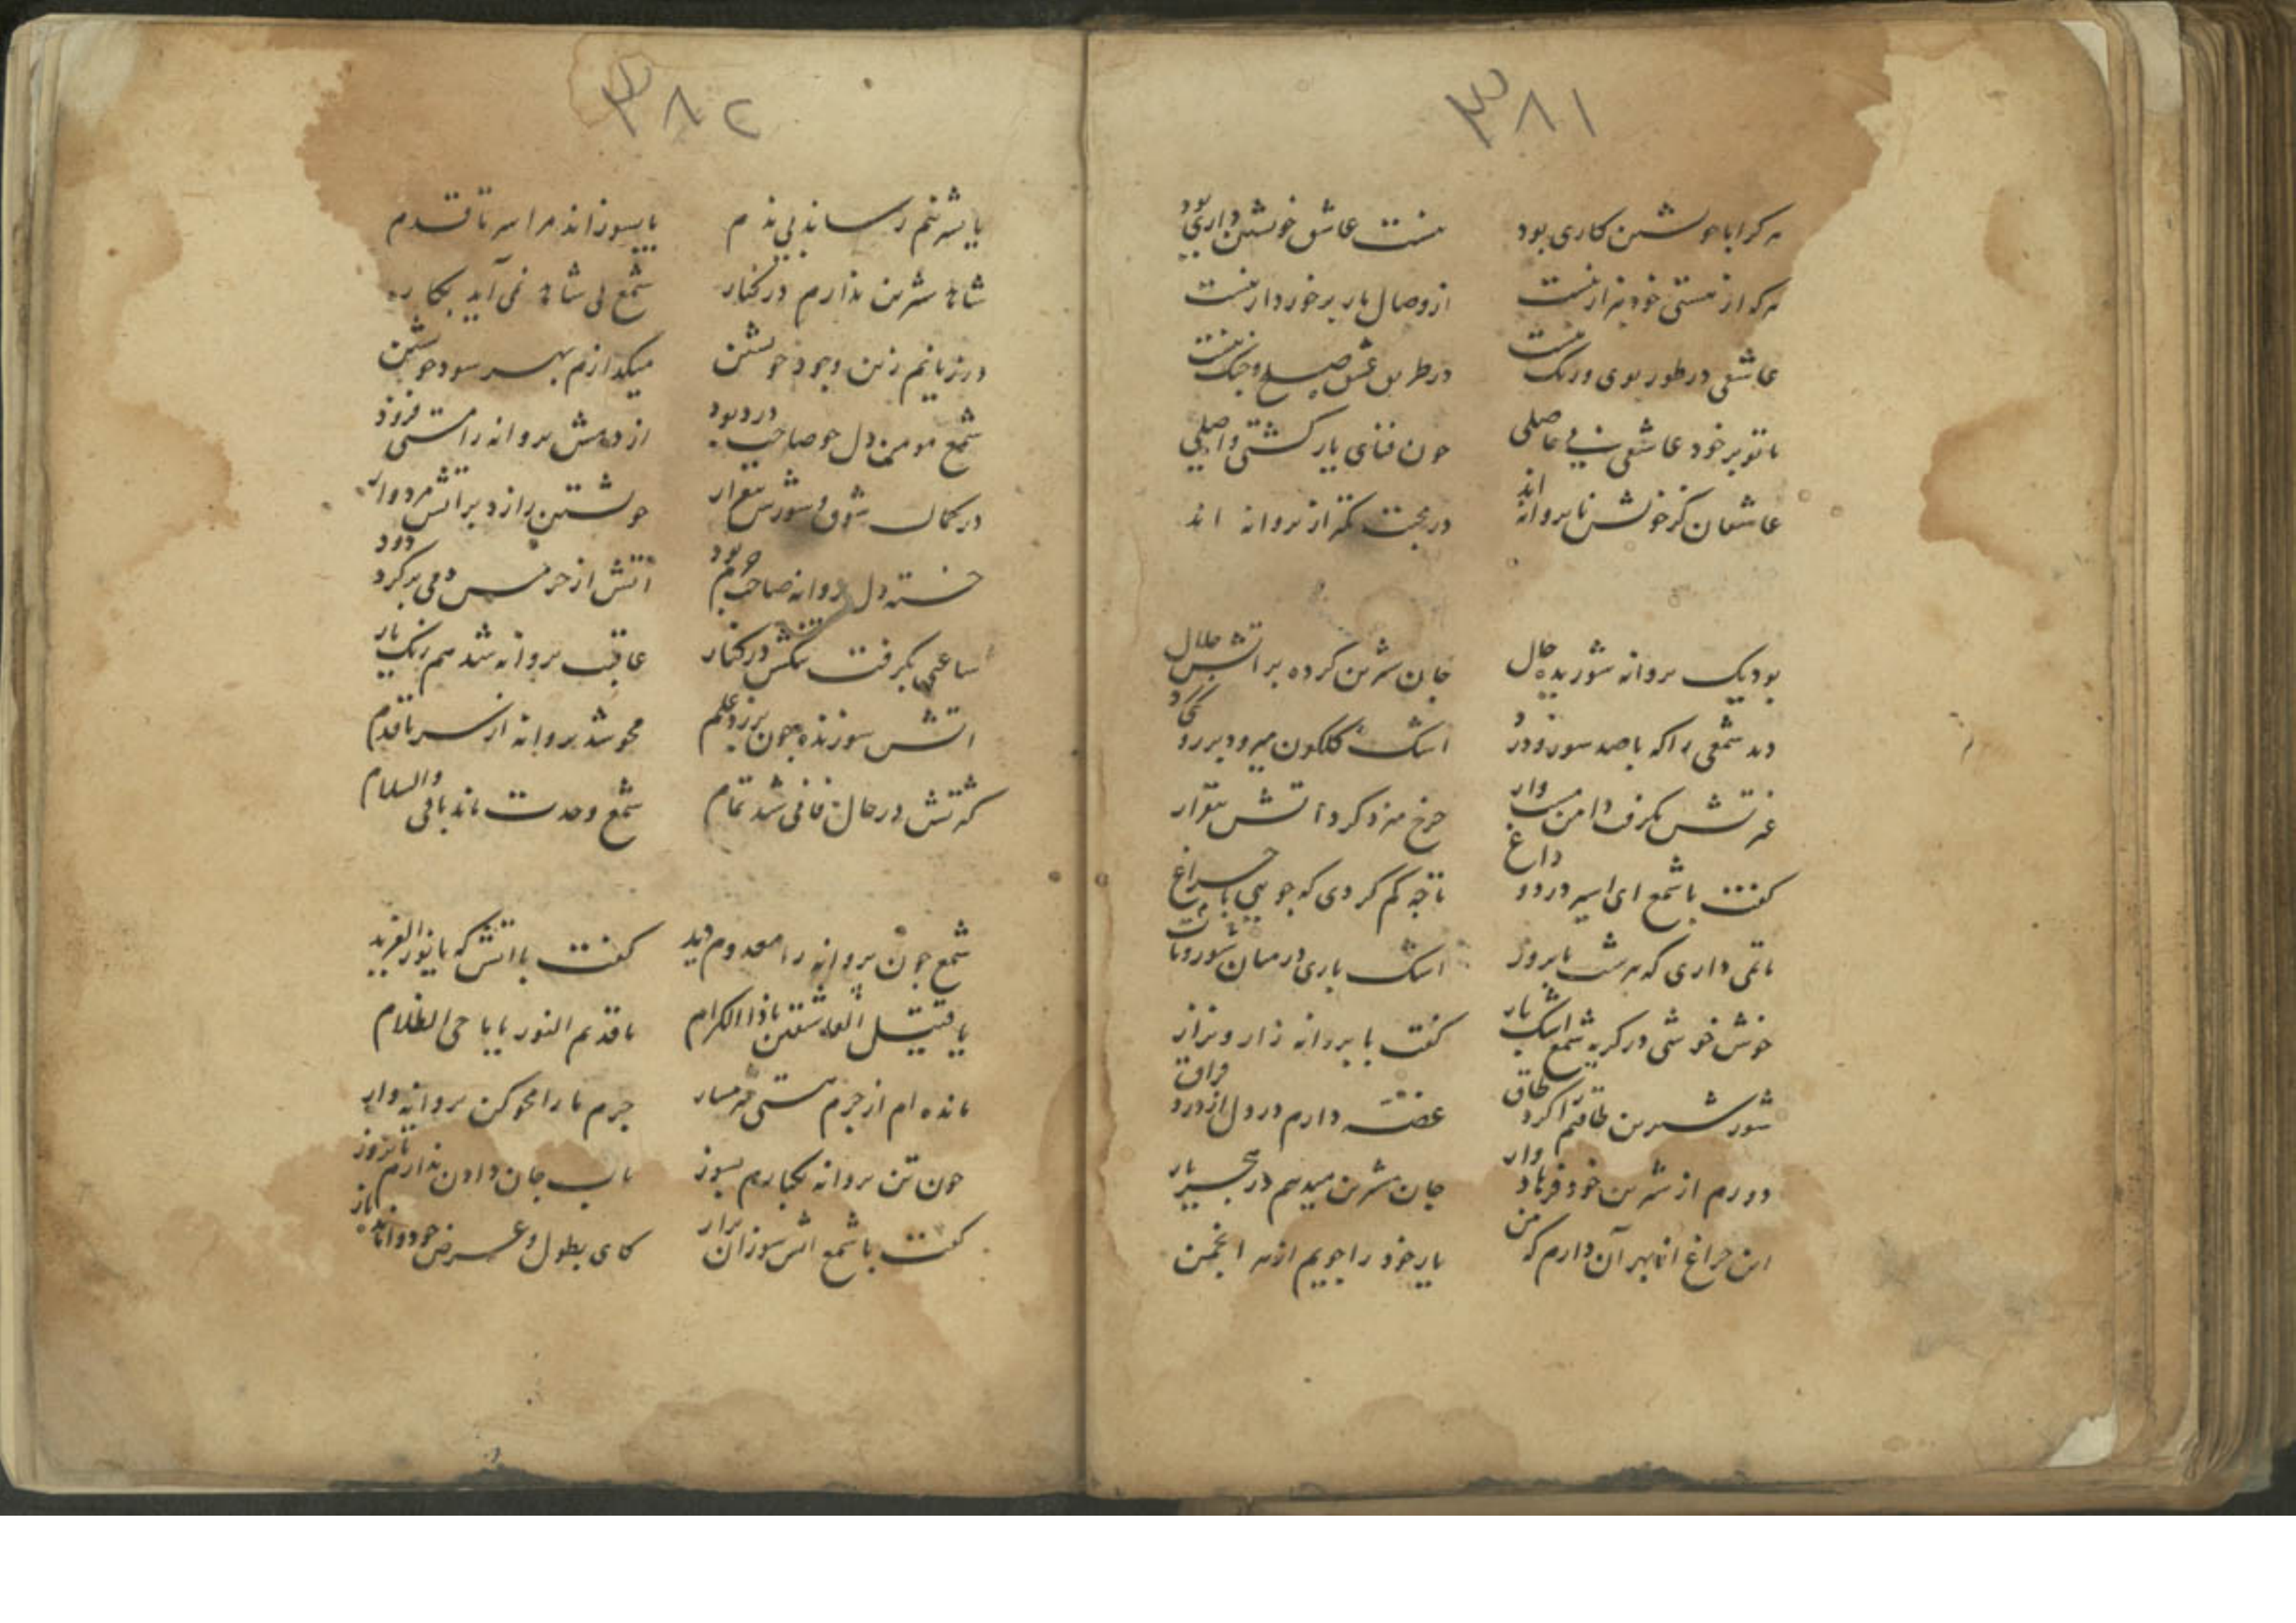 ۳۸۱
هر کرا با خویشتن کاری بود نیست عاشق خویشتن داری بود
هر که از هستی خود بیزار نیست از وصال یار برخوردار نیست
عاشقی در طور بوی و رنک نیست در طریق عشق صلح و جنک نیست
تا تو بر خود عاشقی بی حاصلی چون فنای یار کشتی واصلی
عاشقان کز خویشتن نا پروا اند در محبت کمتر از پروانه اند
بود یک پروانه شوریده حال جان شیرین کرده بر آتش حلال
دید شمعی را که با صد سوز و درد اشک کلکون میرود بر روی
غیرتش بکرفت دامن وار چرخ میزد کرد آتش بیقرار
کفت با شمع ای اسیر درد و داغ تا چه کم کردی که جویی با چراغ
ماتمی داری که هر شب تا بروز اشک باری در میان
خوش خوشی در کریه شمع اشک بار کفت با پروانه زار و نزار
شور شیرین طاقتم را کرد طاق غصه دارم در دل از درد فراق
دورم از شیرین خود فرهاد وار جان شیرین میدهم در هجر یار
این چراغ از بهر آن دارم که من یار خود را جویم از هر انجمن
۳۸۲
یا بشیرینم رساند بی ندم یا بسوزاند مرا سر تا قدم
شاهد شیرین ندارم در کنار شمع بی شاهد نمی آید بکار
در زیانم زین وجود خویشتن میکدازم بهر سود خویشتن
شمع مومین دل چو صاحب درد بود از دمش پروانه را هستی فزود
در کمال شوق و شورش بیقرار خویشتن را زد بر آتش مردوار
خسته دل پروانه صاحب بود آتش از خرمن دمی بر کرد دود
ساعتی بکرفت تنکش در کنار عاقبت پروانه شد هم رنک یار
آتش سوزنده چون بر زد علم محو شد پروانه از سر تا قدم
کثرتش در حال فانی شد تمام شمع وحدت ماند باقی والسلام
شمع چون پروانه را معدوم دید کفت با آتش که یا نور الفرید
یا قتیل العاشقین یا ذا الکرام یا قدیم النور یا ماحی الظلام
مانده ام از جرم هستی شرمسار جرم ما را محو کن پروانه وار
چون تن پروانه یکبارم بسوز تاب جان دادن ندارم تا بروز
کفت با شمع آتش سوزان براز کای بطول و عرض خود وا مانده باز